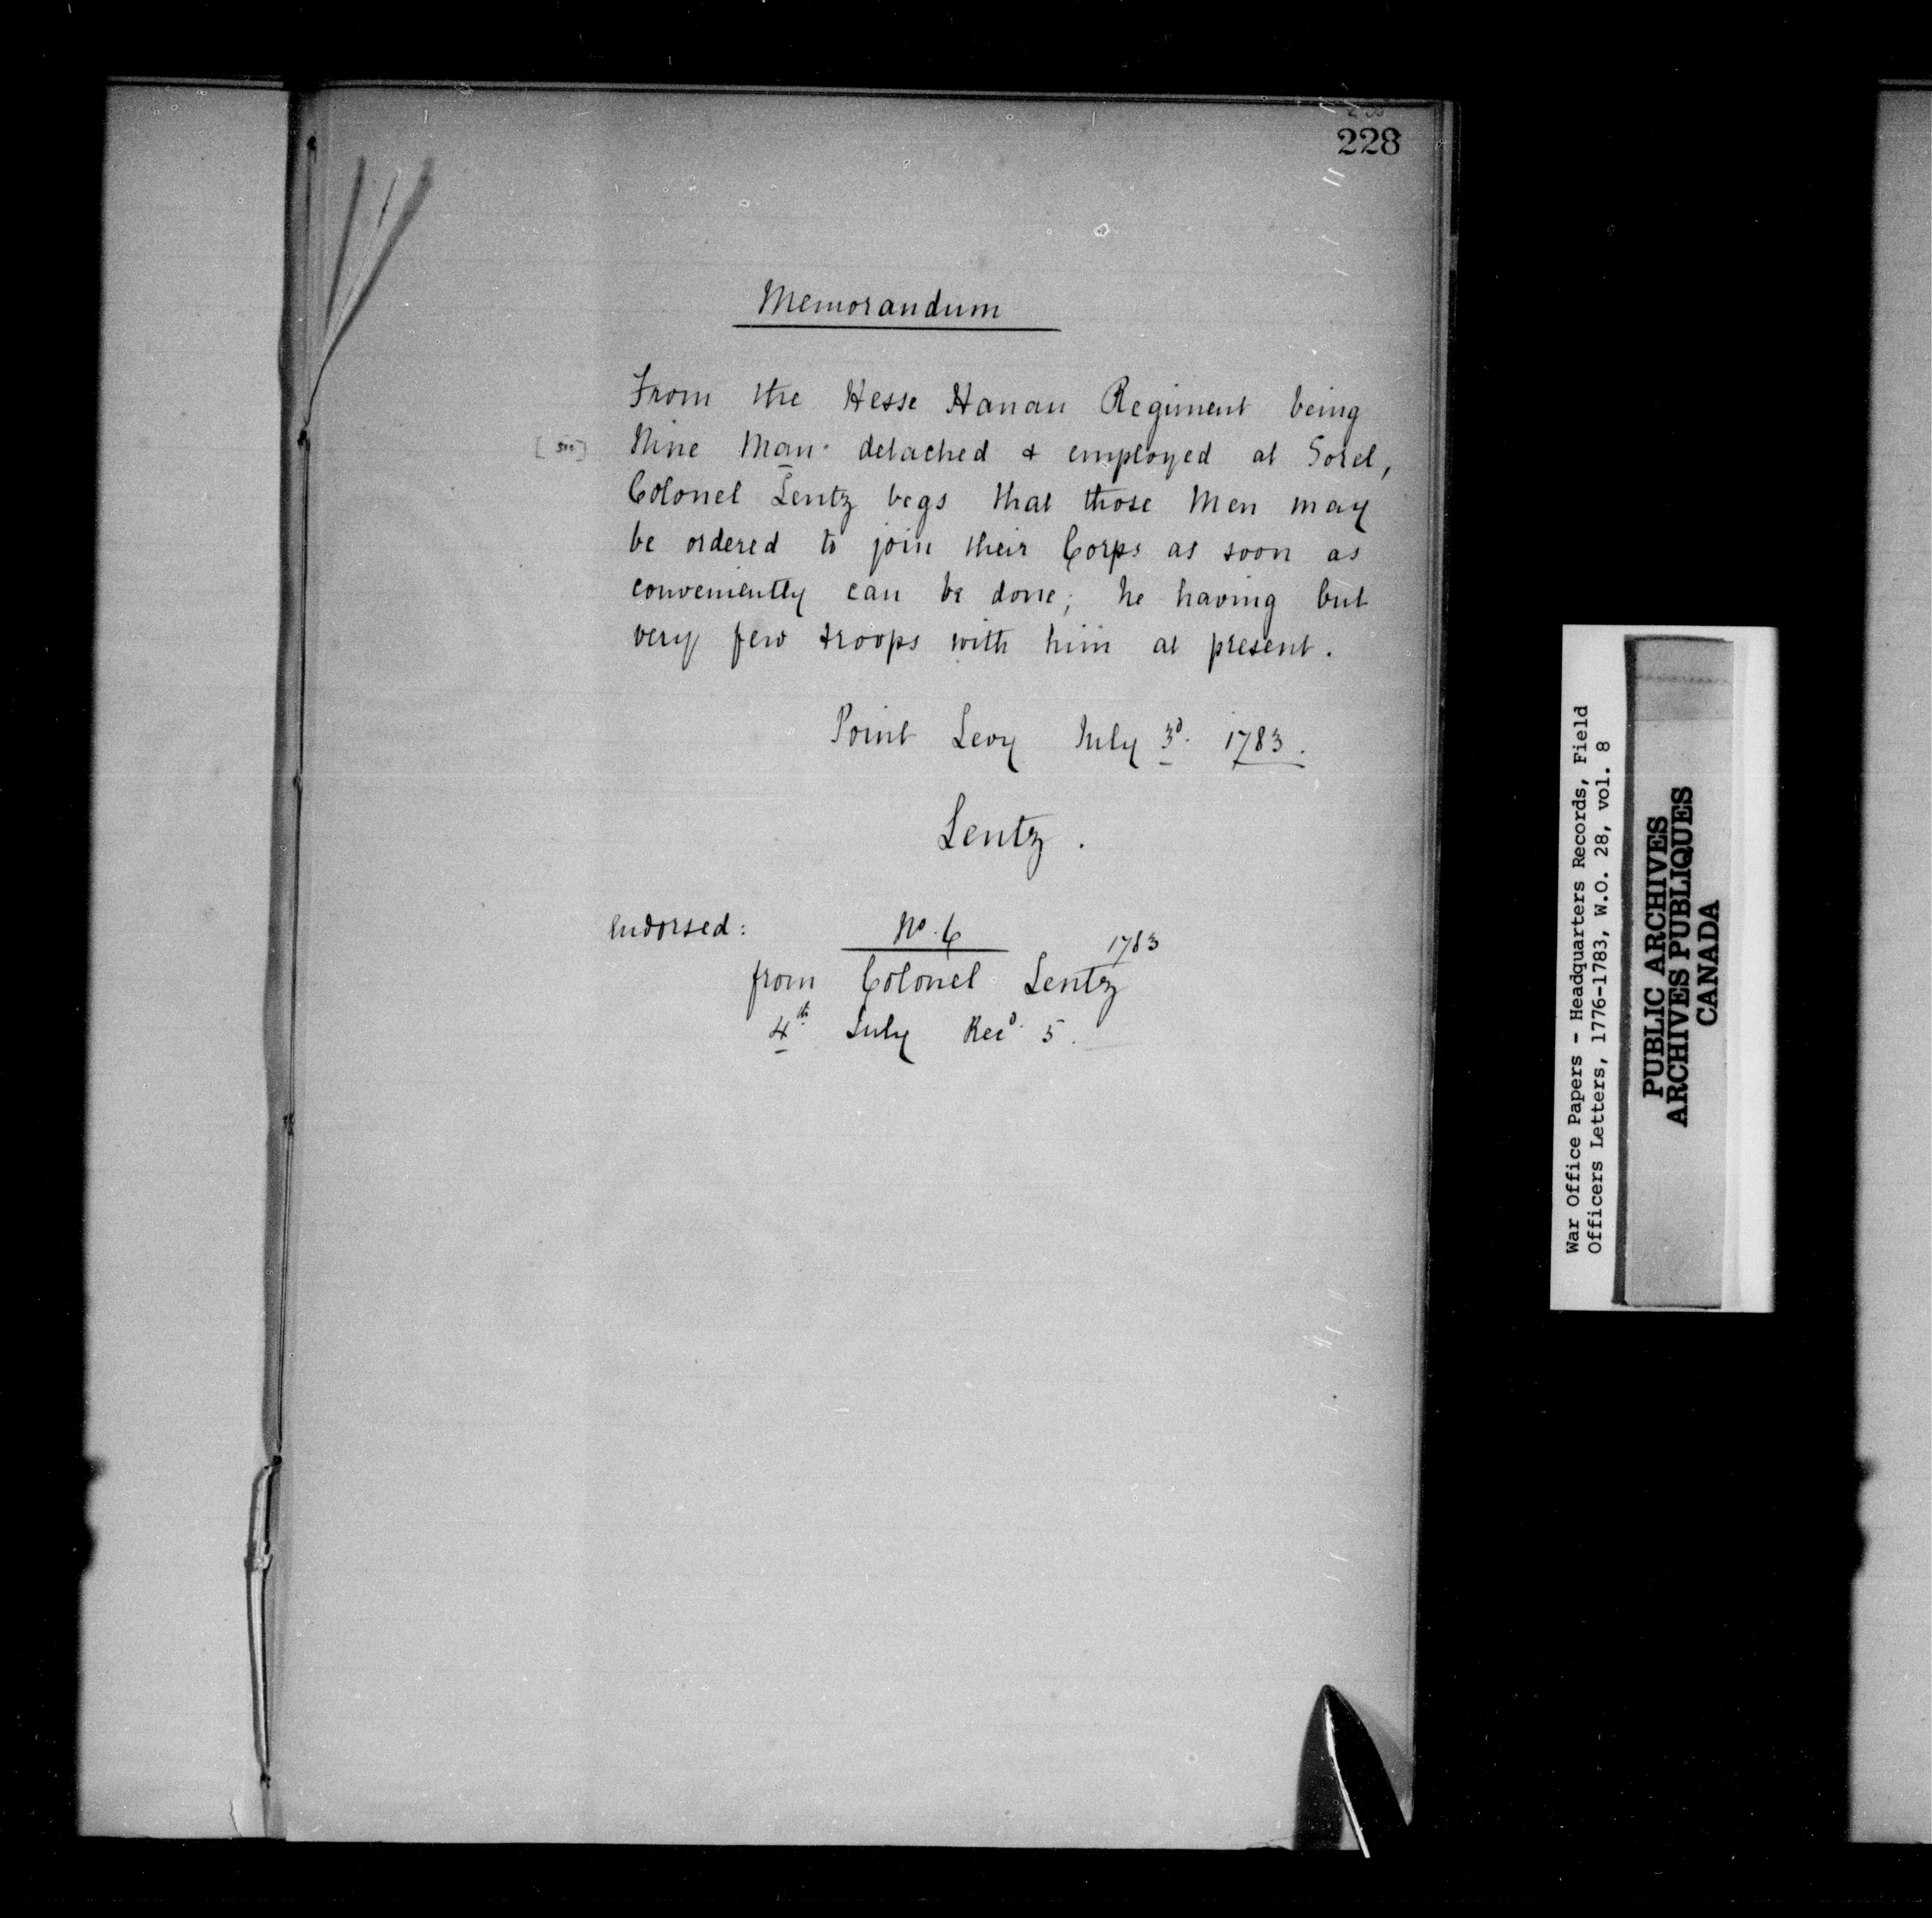 228
Memorandum
From the Hesse Hanau Regiment being
[sic] Nine Man detached & employed at Sorel,
Colonel Lentz begs that those Men may
be ordered to join their Corps as soon as
conveniently can be done; he having but
very few troops with him at present.
Point Levy July 3d. 1783.
Lentz.
Endorsed: No. 6
1783
from Colonel Lentz
4th July Recd. 5.
War Office Papers - Headquarters Records, Field
Officers Letters, 1776-1783, W.O. 28, vol. 8
PUBLIC ARCHIVES
ARCHIVES PUBLIQUES
CANADA